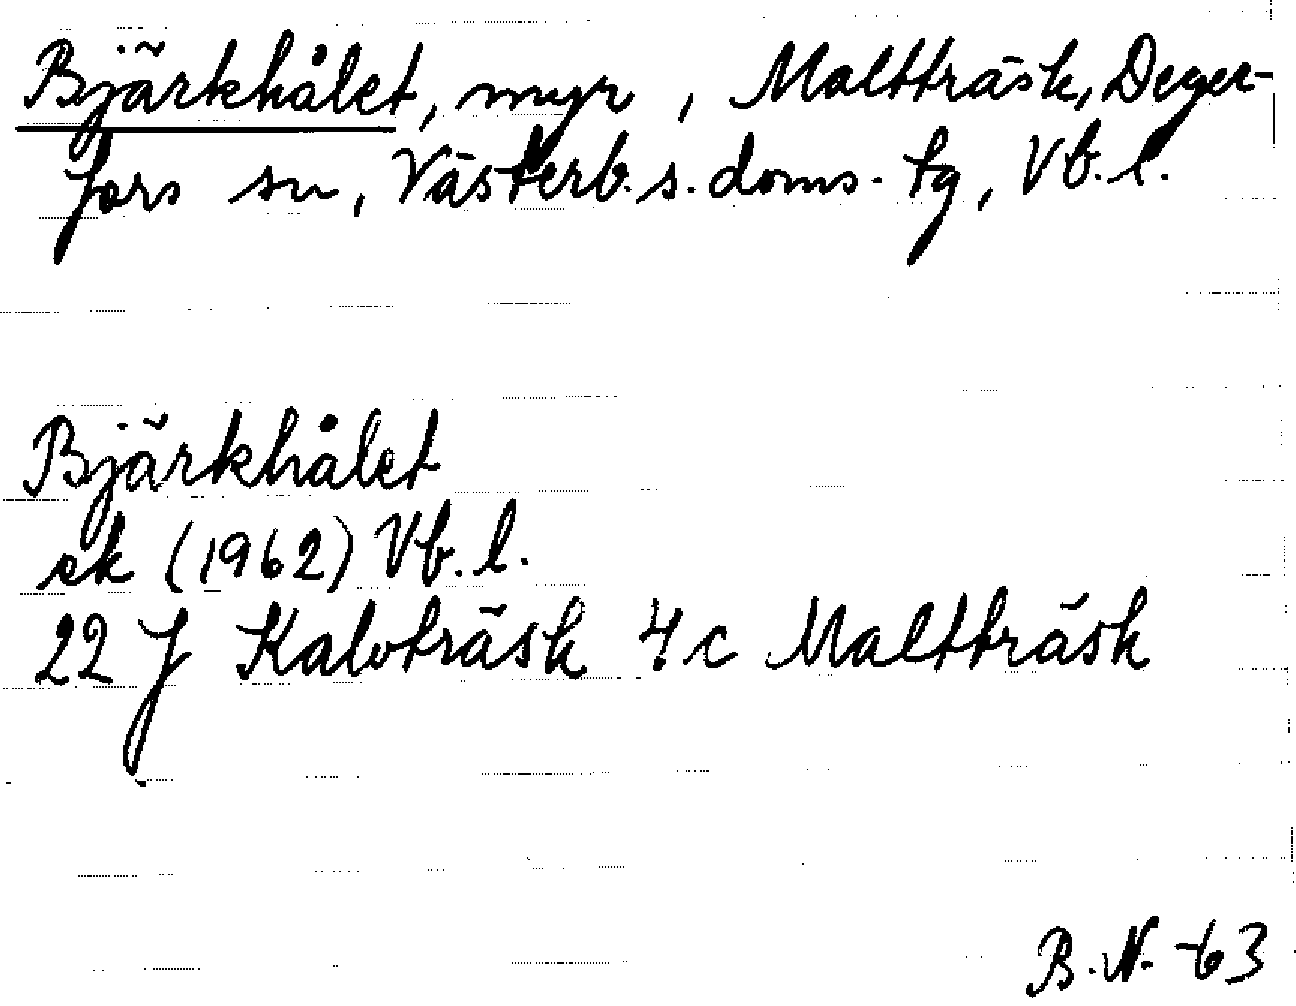 Bjärkhålet, myr, Maltträsk, Deger-
fors sn, Västerb. s. doms. tg, Vb. l.
Bjärkhålet
ek (1962) Vb. l.
22 J Kalvträsk 4c Maltträsk
B. N. -63